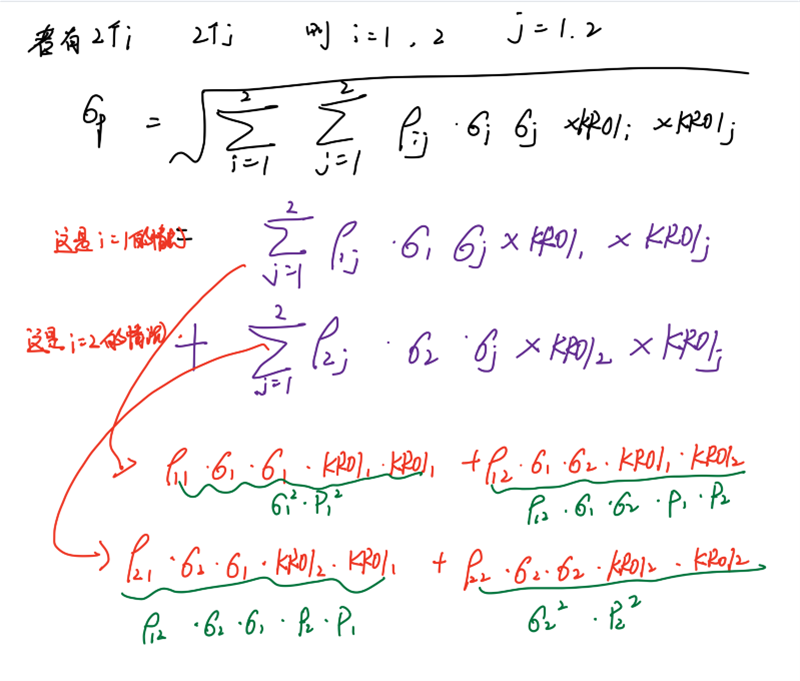 若有2个i 2个j 则 i=1, 2 j=1.2
σp = √ ∑_{i=1}^{2} ∑_{j=1}^{2} ρij · σi σj × KR01i × KR01j
这是i=1的情况 = ∑_{j=1}^{2} ρ1j · σ1 σj × KR01, × KR01j
这是i=2的情况) + ∑_{j=1}^{2} ρ2j · σ2 · σj × KR012 × KR01j
ρ11 · σ1 · σ1 · KR011 · KR011 + ρ12 · σ1 · σ2 · KR011 · KR012
σ1² · P1² ρ12 · σ1 · σ2 · P1 · P2
ρ21 · σ2 · σ1 · KR012 · KR011 + ρ22 · σ2 · σ2 · KR012 · KR012
ρ12 · σ2 · σ1 · P2 · P1 σ2² · P2²